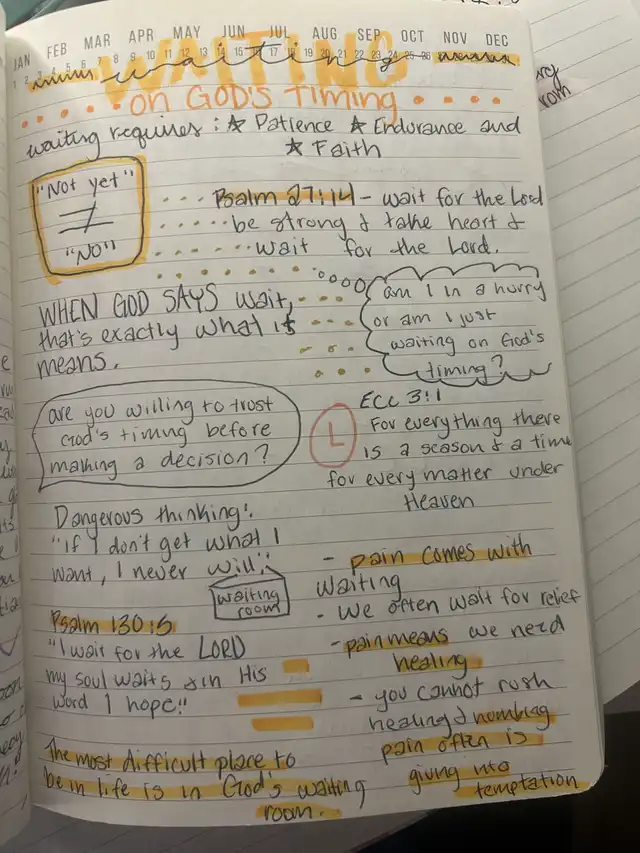 JAN FEB MAR APR MAY JUN JUL AUG SEP OCT NOV DEC
WAITING
waiting
on GOD'S TIMING
waiting requires: ☆ Patience ☆ Endurance and
☆ Faith
"Not yet"
≠
"NO"
Psalm 27:14 - wait for the Lord
be strong & take heart &
wait for the Lord.
WHEN GOD SAYS wait,
that's exactly what it
means.
am I in a hurry
or am I just
waiting on God's
timing?
are you willing to trust
God's timing before
making a decision?
L
ECC 3:1
For everything there
is a season & a time
for every matter under
Heaven
Dangerous thinking!
"If I don't get what I
want, I never will"
waiting
room
Psalm 130:5
"I wait for the LORD
my soul waits & in His
word I hope."
The most difficult place to
be in life is in God's waiting
room.
- pain comes with
waiting
- we often wait for relief
- pain means we need
healing
- you cannot rush
healing & numbing
pain often is
giving into
temptation